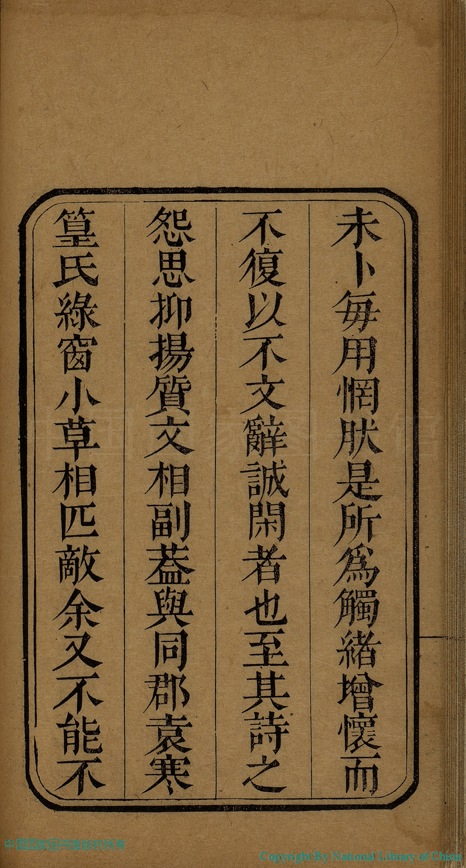 未卜每用惘肰是所爲觸緒增懷而
不復以不文辭誠閑者也至其詩之
怨思抑揚質文相副葢與同郡袁寒
篁氏綠窗小草相匹敵余又不能不
Copyright By National Library of China